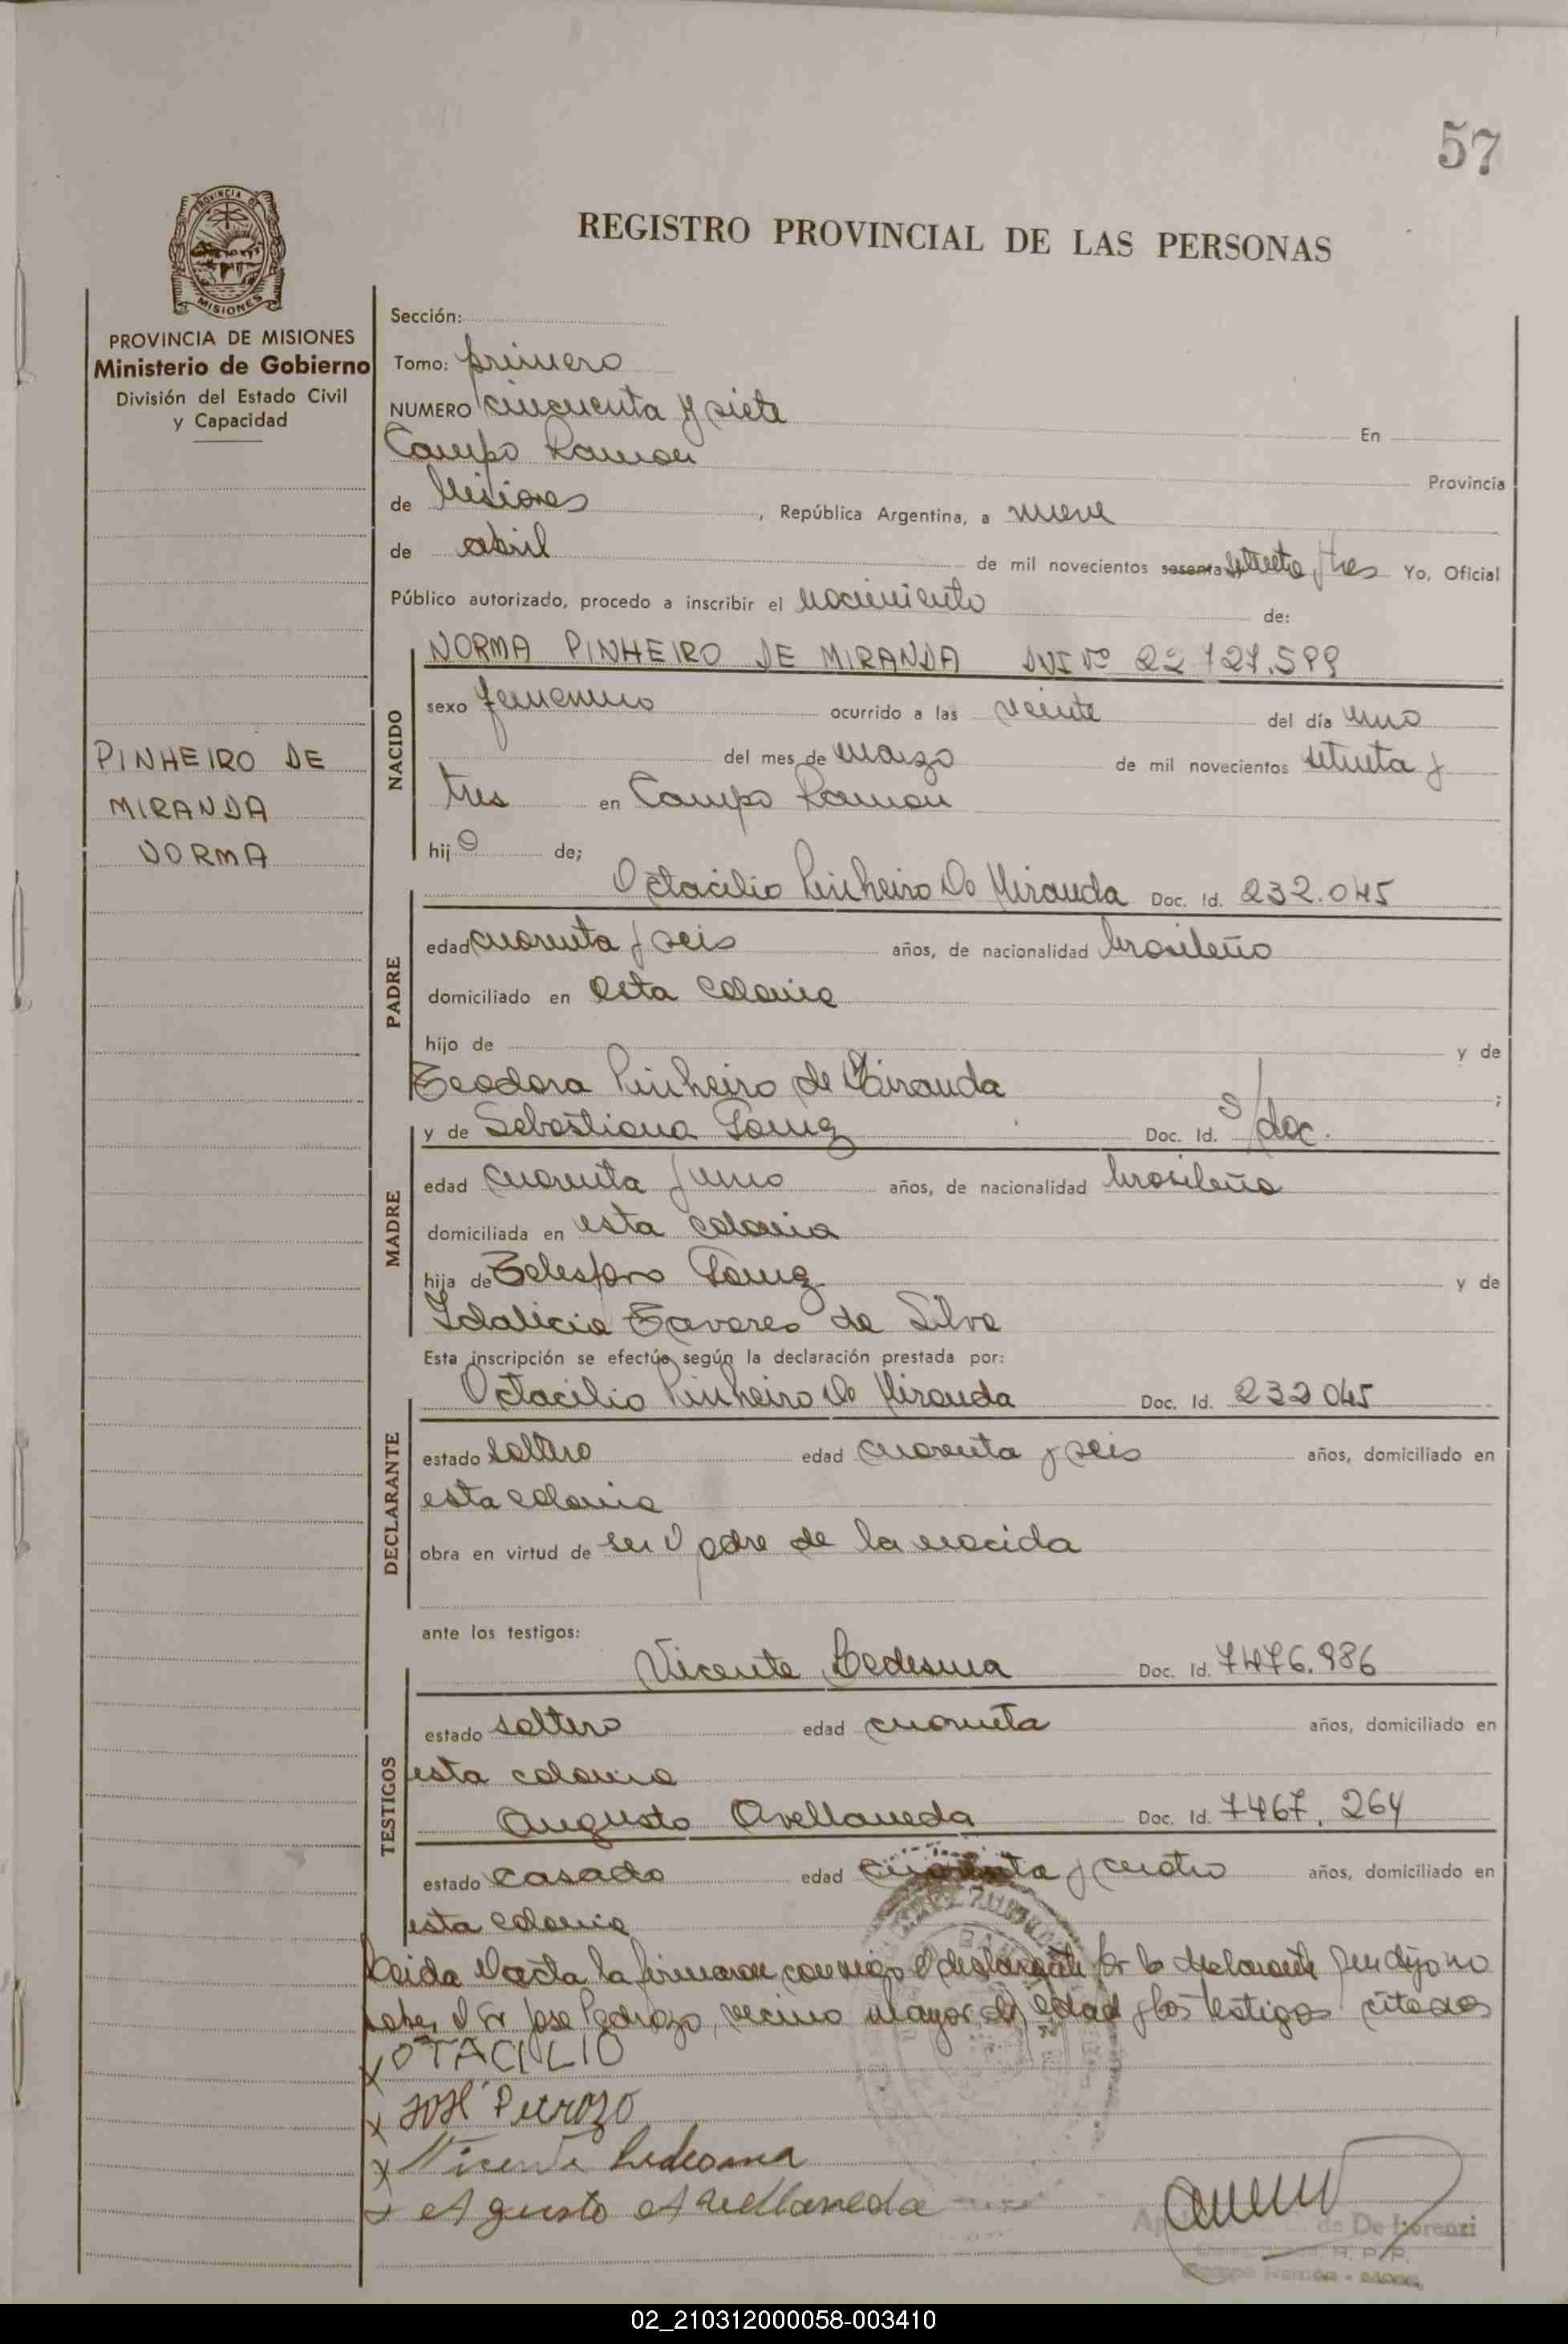 57
PROVINCIA DE
MISIONES
REGISTRO PROVINCIAL DE LAS PERSONAS
PROVINCIA DE MISIONES
Ministerio de Gobierno
División del Estado Civil
y Capacidad
PINHEIRO DE
MIRANDA
NORMA
Sección:
Tomo: primero
NUMERO cincuenta y siete En
Campo Ramon Provincia
de Misiones, República Argentina, a nueve
de abril de mil novecientos sesenta setenta y tres Yo, Oficial
Público autorizado, procedo a inscribir el nacimiento de:
NACIDO
NORMA PINHEIRO DE MIRANDA DNI Nº 22.727.599
sexo femenino ocurrido a las veinte del día uno
del mes de marzo de mil novecientos setenta y
tres en Campo Ramon
hijo de;
PADRE
Octacilio Pinheiro De Miranda Doc. Id. 232.045
edad cuarenta y seis años, de nacionalidad brasileño
domiciliado en esta colonia
hijo de y de
Teodora Pinheiro de Miranda ;
MADRE
y de Sebastiana Doc. Id. s/doc.
edad cuarenta y uno años, de nacionalidad brasileña
domiciliada en esta colonia
hija de Telesforo y de
Idalicia Tavares da Silva
Esta inscripción se efectúa según la declaración prestada por:
DECLARANTE
Octacilio Pinheiro De Miranda Doc. Id. 232045
estado soltero edad cuarenta y seis años, domiciliado en
esta colonia
obra en virtud de ser el padre de la nacida
ante los testigos:
TESTIGOS
Vicente Ledesma Doc. Id. 7476.986
estado soltero edad cuarenta años, domiciliado en
esta colonia
Augusto Avellaneda Doc. Id. 7467.264
estado casado edad cuarenta y cuatro años, domiciliado en
esta colonia
Leida el acta la firmaron conmigo el declarante Por la declarante que dijo no
saber el Sr Jose Pedrozo, vecino mayor de edad y los testigos citados
x OTACILIO
x José Pedrozo
x Vicente Ledesma
x Agusto Avellaneda
de De Lorenzi
R. P. P.
Campo Ramón
02_210312000058-003410